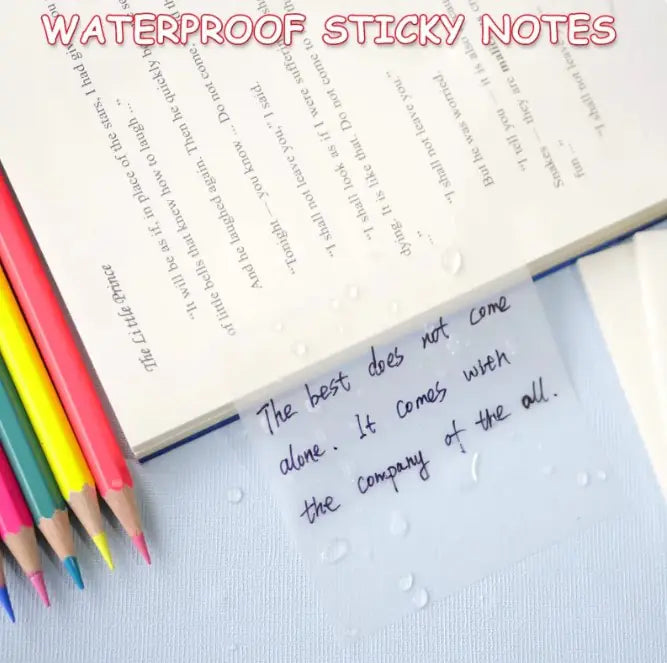 WATERPROOF STICKY NOTES
The Little Prince
"It will be as if, in place of the stars, I had giv
of little bells that knew how to laugh ..."
And he laughed again. Then he quickly b
"Tonight — you know ... Do not come,
"I shall not leave you," I said.
"I shall look as if I were sufferin
dying. It is like that. Do not come to
..."
"I shall not leave you."
But he was worried.
"I tell you — it is also
Snakes — they are mali
fun ..."
"I shall not leave
The best does not come
alone. It comes with
the company of the all.